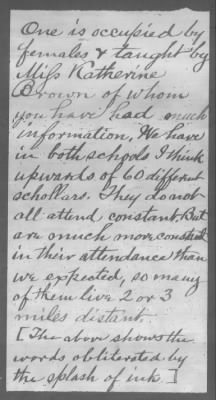 One is occupied by
females & taught by
Miss Katherine
Brown of whom
you have had much
information. We have
in both schools I think
upwards of 60 different
schollars. They do not
all attend constant. But
are much more constant
in their attendance than
we expected, so many
of them live 2 or 3
miles distant.
[The above shows the
words obliterated by
the splash of ink.]